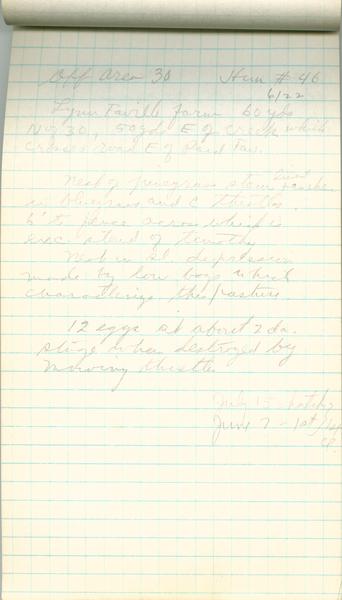 Off Area 30 Hen # 46
6/22
Lynn Faville Farm 60 yds
N of 30, 50 yds E of Creek which
crosses road E of Paid Fav.
Nest of junegrass stems
in bluegrass and C thistle.
6' to fence across which is
exc. stand of timothy
Nest in sl. depression
made by low bogs which
characterize the pasture
12 eggs at about 2 da.
stage when destroyed by
mowing thistle
July 15 - hatch
June 7 - 1st